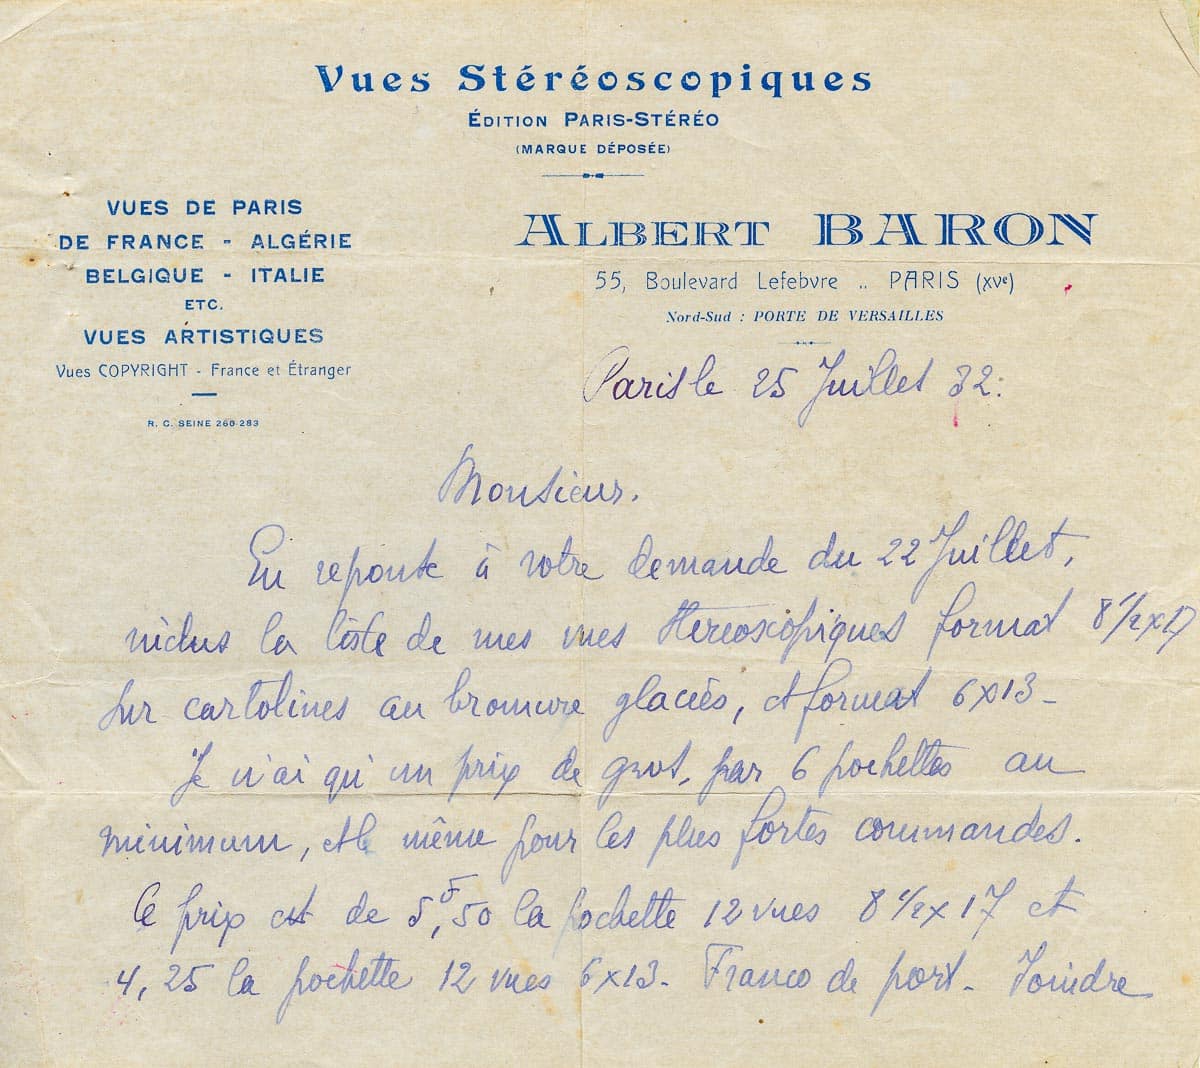 Vues Stéréoscopiques
ÉDITION PARIS-STÉRÉO
(MARQUE DÉPOSÉE)
VUES DE PARIS
DE FRANCE - ALGÉRIE
BELGIQUE - ITALIE
ETC.
VUES ARTISTIQUES
Vues COPYRIGHT - France et Étranger
R. C. SEINE 260-283
ALBERT BARON
55, Boulevard Lefebvre .. PARIS (XVe)
Nord-Sud : PORTE DE VERSAILLES
Paris le 25 Juillet 32.
Monsieur.
En reponse à votre demande du 22 Juillet,
inclus la liste de mes vues stereoscopiques format 8 1/2 x 17
sur cartolines au bromure glacées, et format 6x13 -
Je n'ai qu'un prix de gros, par 6 pochettes au
minimum, et le même pour les plus fortes commandes.
Ce prix est de 5F,50 la pochette 12 vues 8 1/2 x 17 et
4,25 la pochette 12 vues 6x13 - Franco de port - Joindre